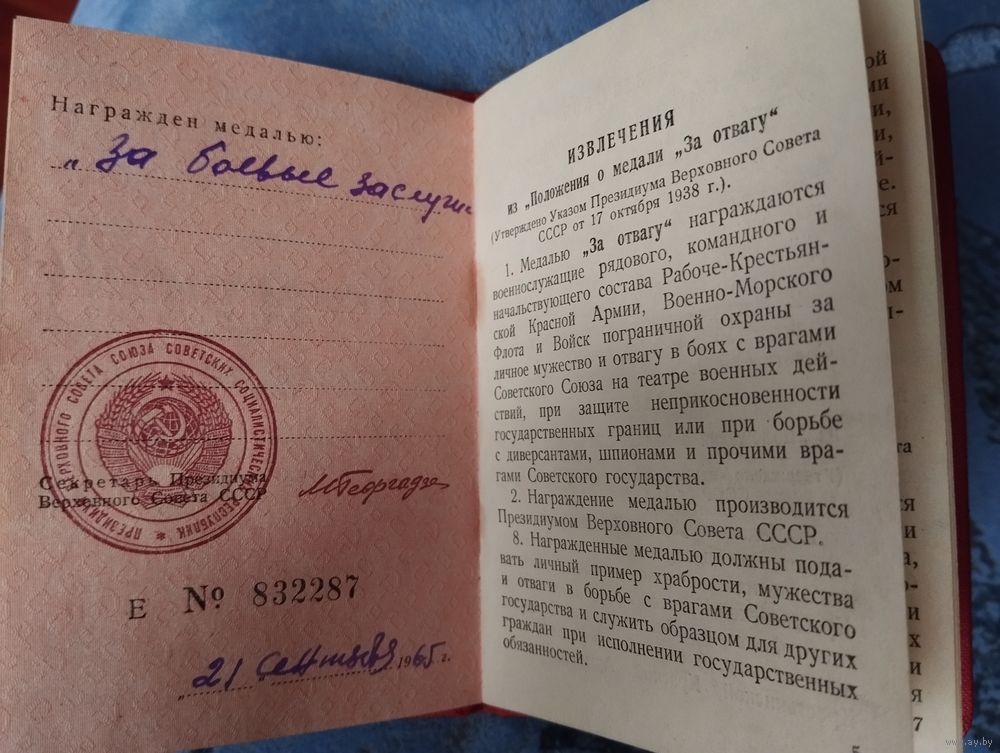 Награжден медалью:
„За боевые заслуги
ПРЕЗИДИУМ ВЕРХОВНОГО СОВЕТА СОЮЗА СОВЕТСКИХ СОЦИАЛИСТИЧЕСКИХ РЕСПУБЛИК
Секретарь Президиума
Верховного Совета СССР
МГеоргадзе
Е № 832287
„21 сентября 1965 г.
ИЗВЛЕЧЕНИЯ
из „Положения о медали „За отвагу“
(Утверждено Указом Президиума Верховного Совета
СССР от 17 октября 1938 г.).
1. Медалью „За отвагу“ награждаются
военнослужащие рядового, командного и
начальствующего состава Рабоче-Крестьян-
ской Красной Армии, Военно-Морского
Флота и Войск пограничной охраны за
личное мужество и отвагу в боях с врагами
Советского Союза на театре военных дей-
ствий, при защите неприкосновенности
государственных границ или при борьбе
с диверсантами, шпионами и прочими вра-
гами Советского государства.
2. Награждение медалью производится
Президиумом Верховного Совета СССР.
8. Награжденные медалью должны пода-
вать личный пример храбрости, мужества
и отваги в борьбе с врагами Советского
государства и служить образцом для других
граждан при исполнении государственных
обязанностей.
5
7
www.ay.by